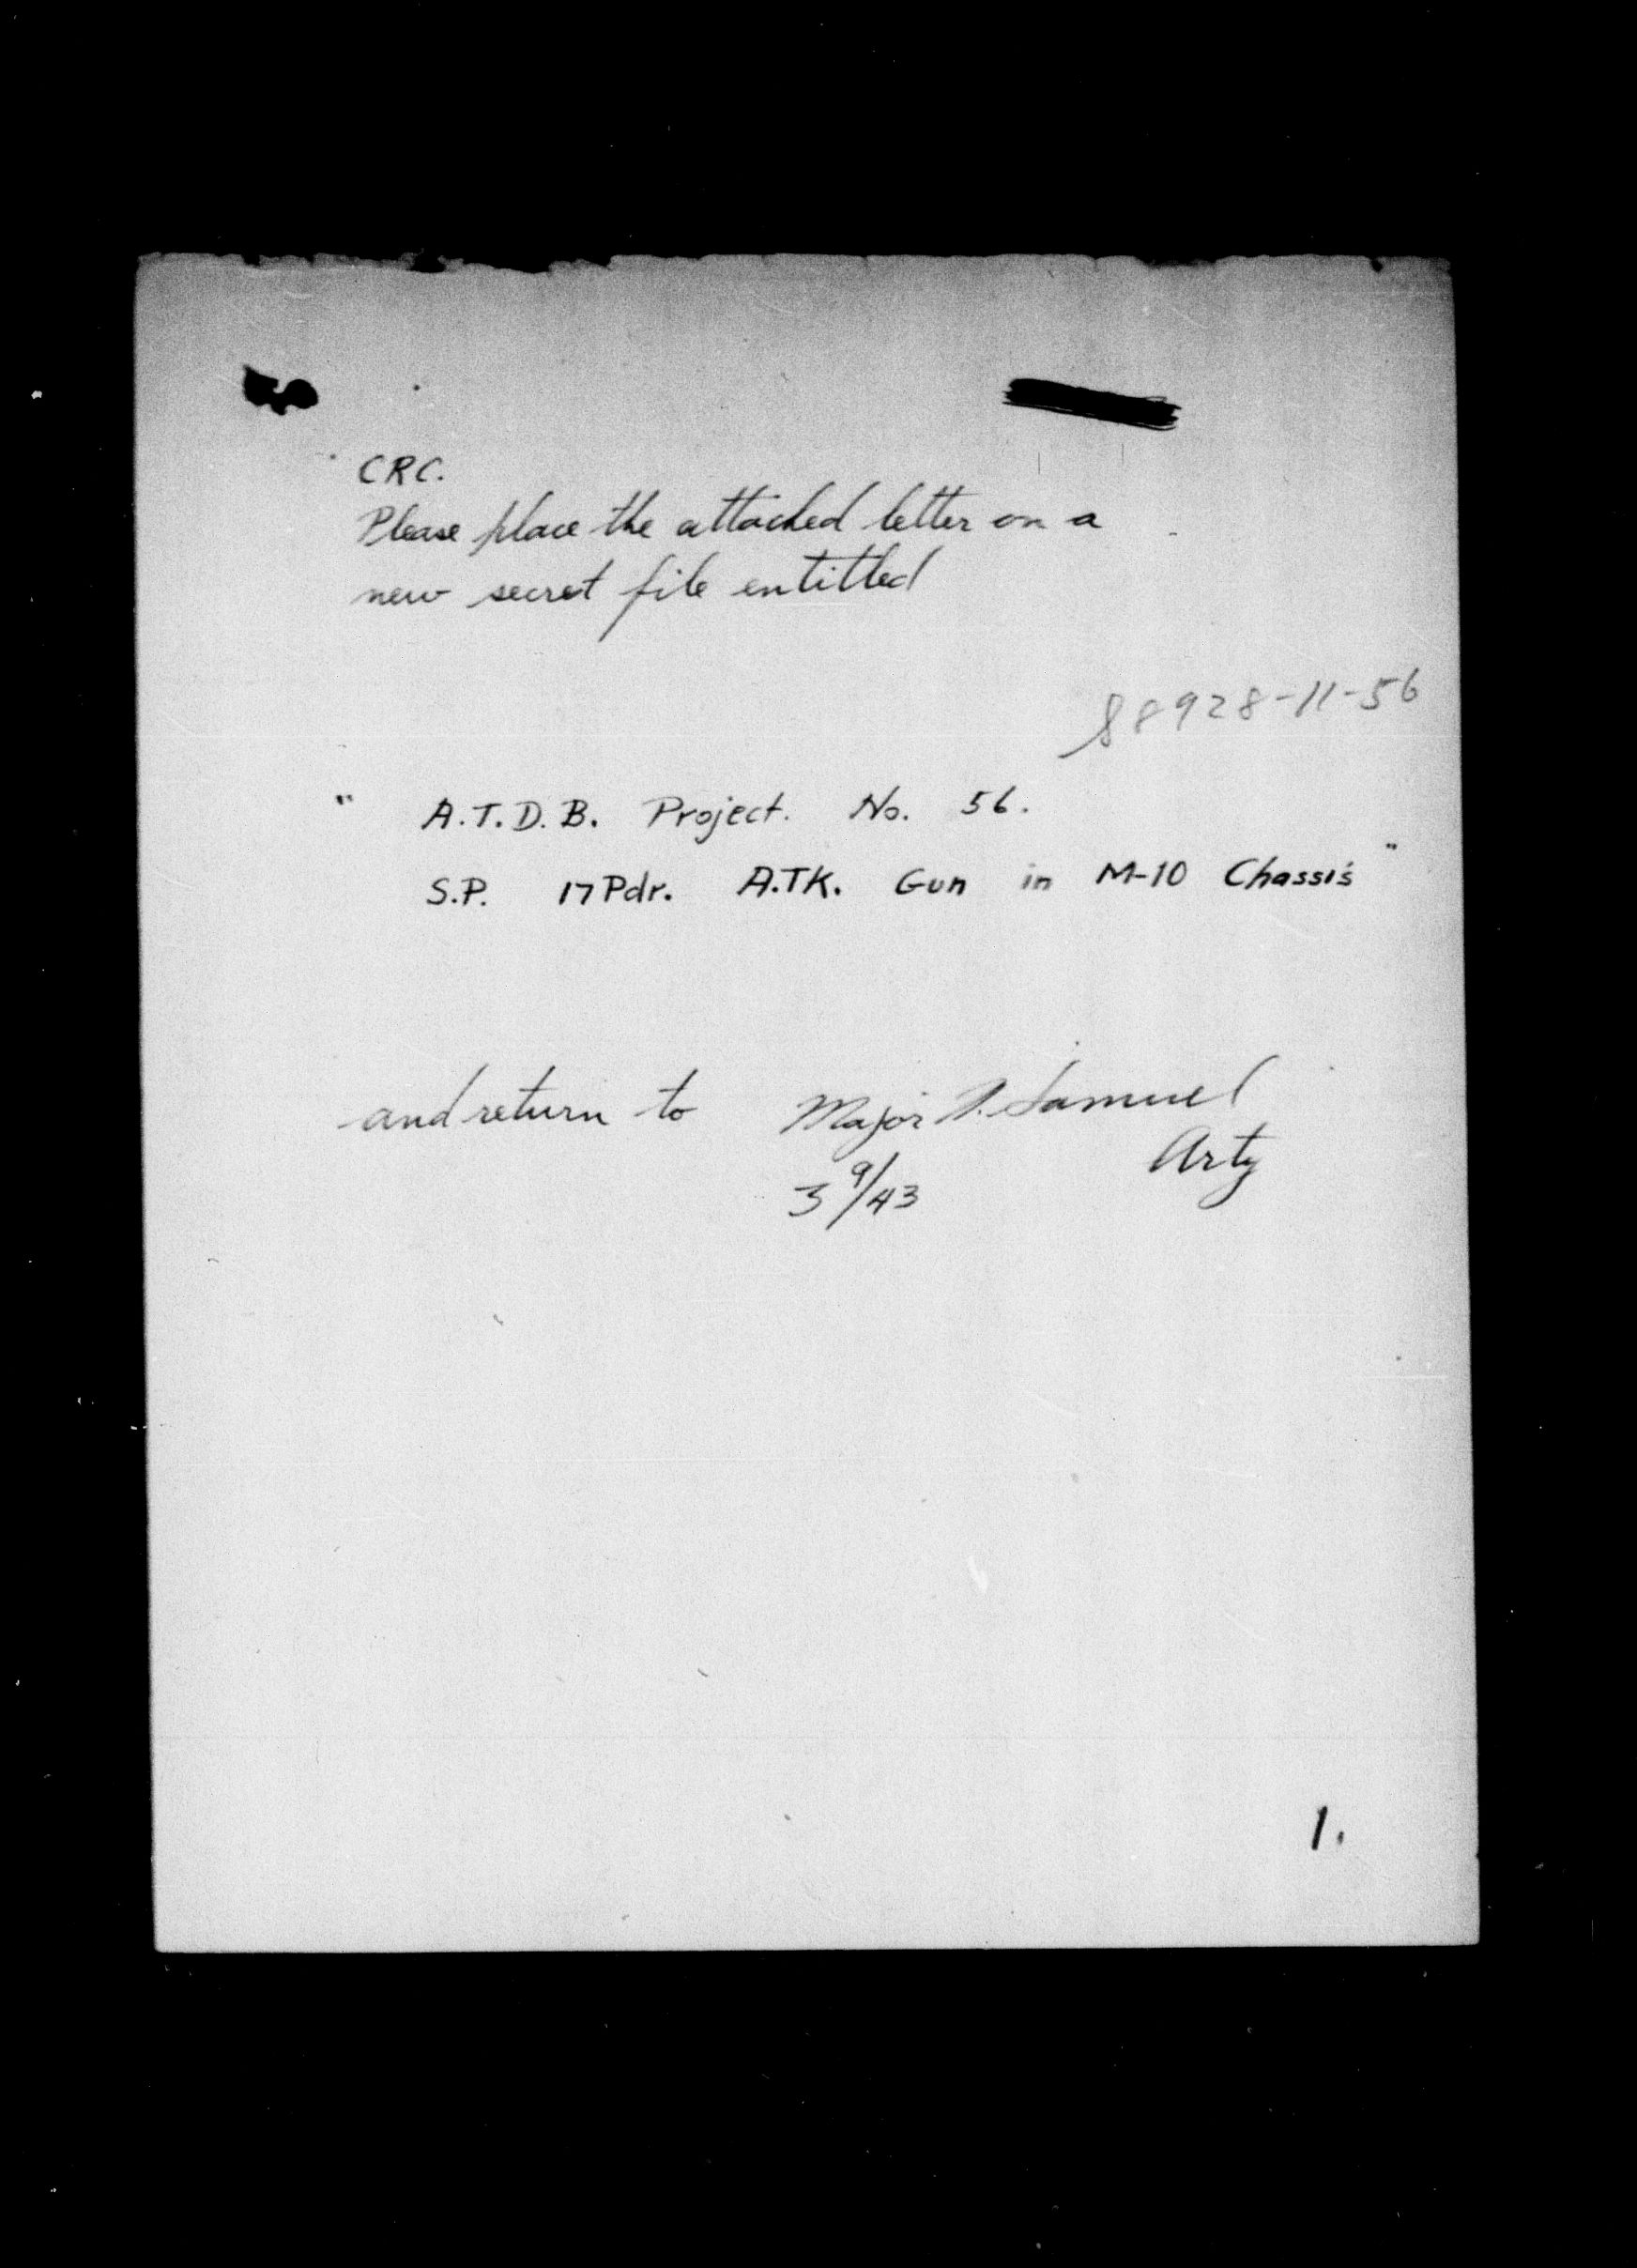 CRC.
Please place the attached letter on a
new secret file entitled
88928-11-56
" A.T.D.B. Project. No. 56.
S.P. 17 Pdr. A.TK. Gun in M-10 Chassis "
and return to Major Samuel
Arty
3 9/43
1.